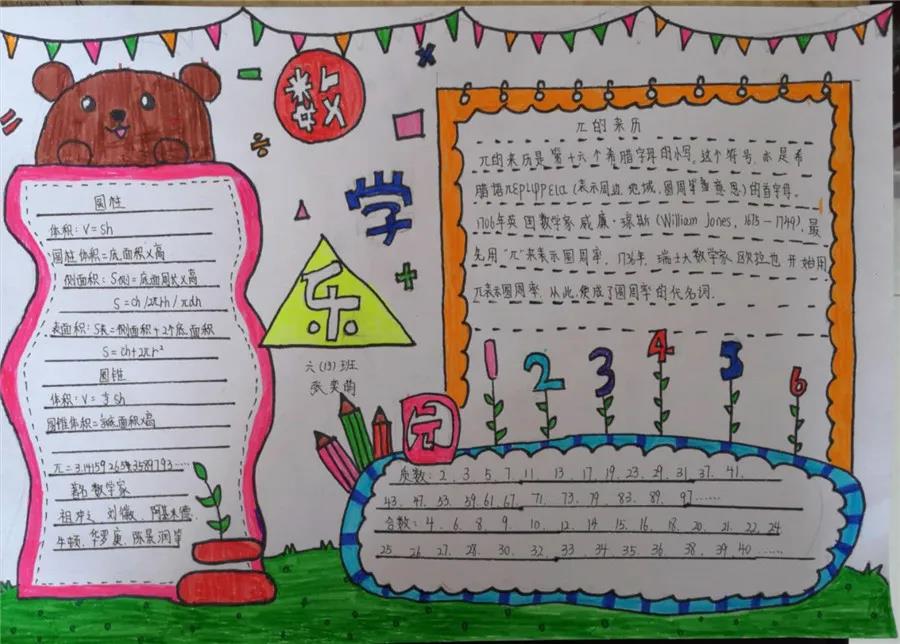 数
学
乐
园
六(13)班
圆柱
体积: V=Sh
圆柱体积=底面积×高
侧面积: S侧=底面周长×高
S=ch/2πrh/πdh
表面积: S表=侧面积+2个底面积
S=ch+2πr²
圆锥
体积: V=⅓Sh
圆锥体积=⅓底面积×高
π=3.141592653589793……
著名数学家
祖冲之、刘徽、阿基米德、
牛顿、华罗庚、陈景润等
π的来历
π的来历是第十六个希腊字母的小写。这个符号,亦是希
腊语περιφρεια(表示周边,地域,圆周等意思)的首字母。
1706年英国数学家威廉·琼斯(William Jones, 1675-1749)最
先用"π"来表示圆周率。1736年,瑞士大数学家欧拉也开始用
π表示圆周率.从此,便成了圆周率的代名词.
1 2 3 4 5 6
质数: 2、3、5、7、11、13、17、19、23、29、31、37、41、
43、47、53、59、61、67、71、73、79、83、89、97……
合数: 4、6、8、9、10、12、14、15、16、18、20、21、22、24
25、26、27、28、30、32、33、34、35、36、38、39、40……